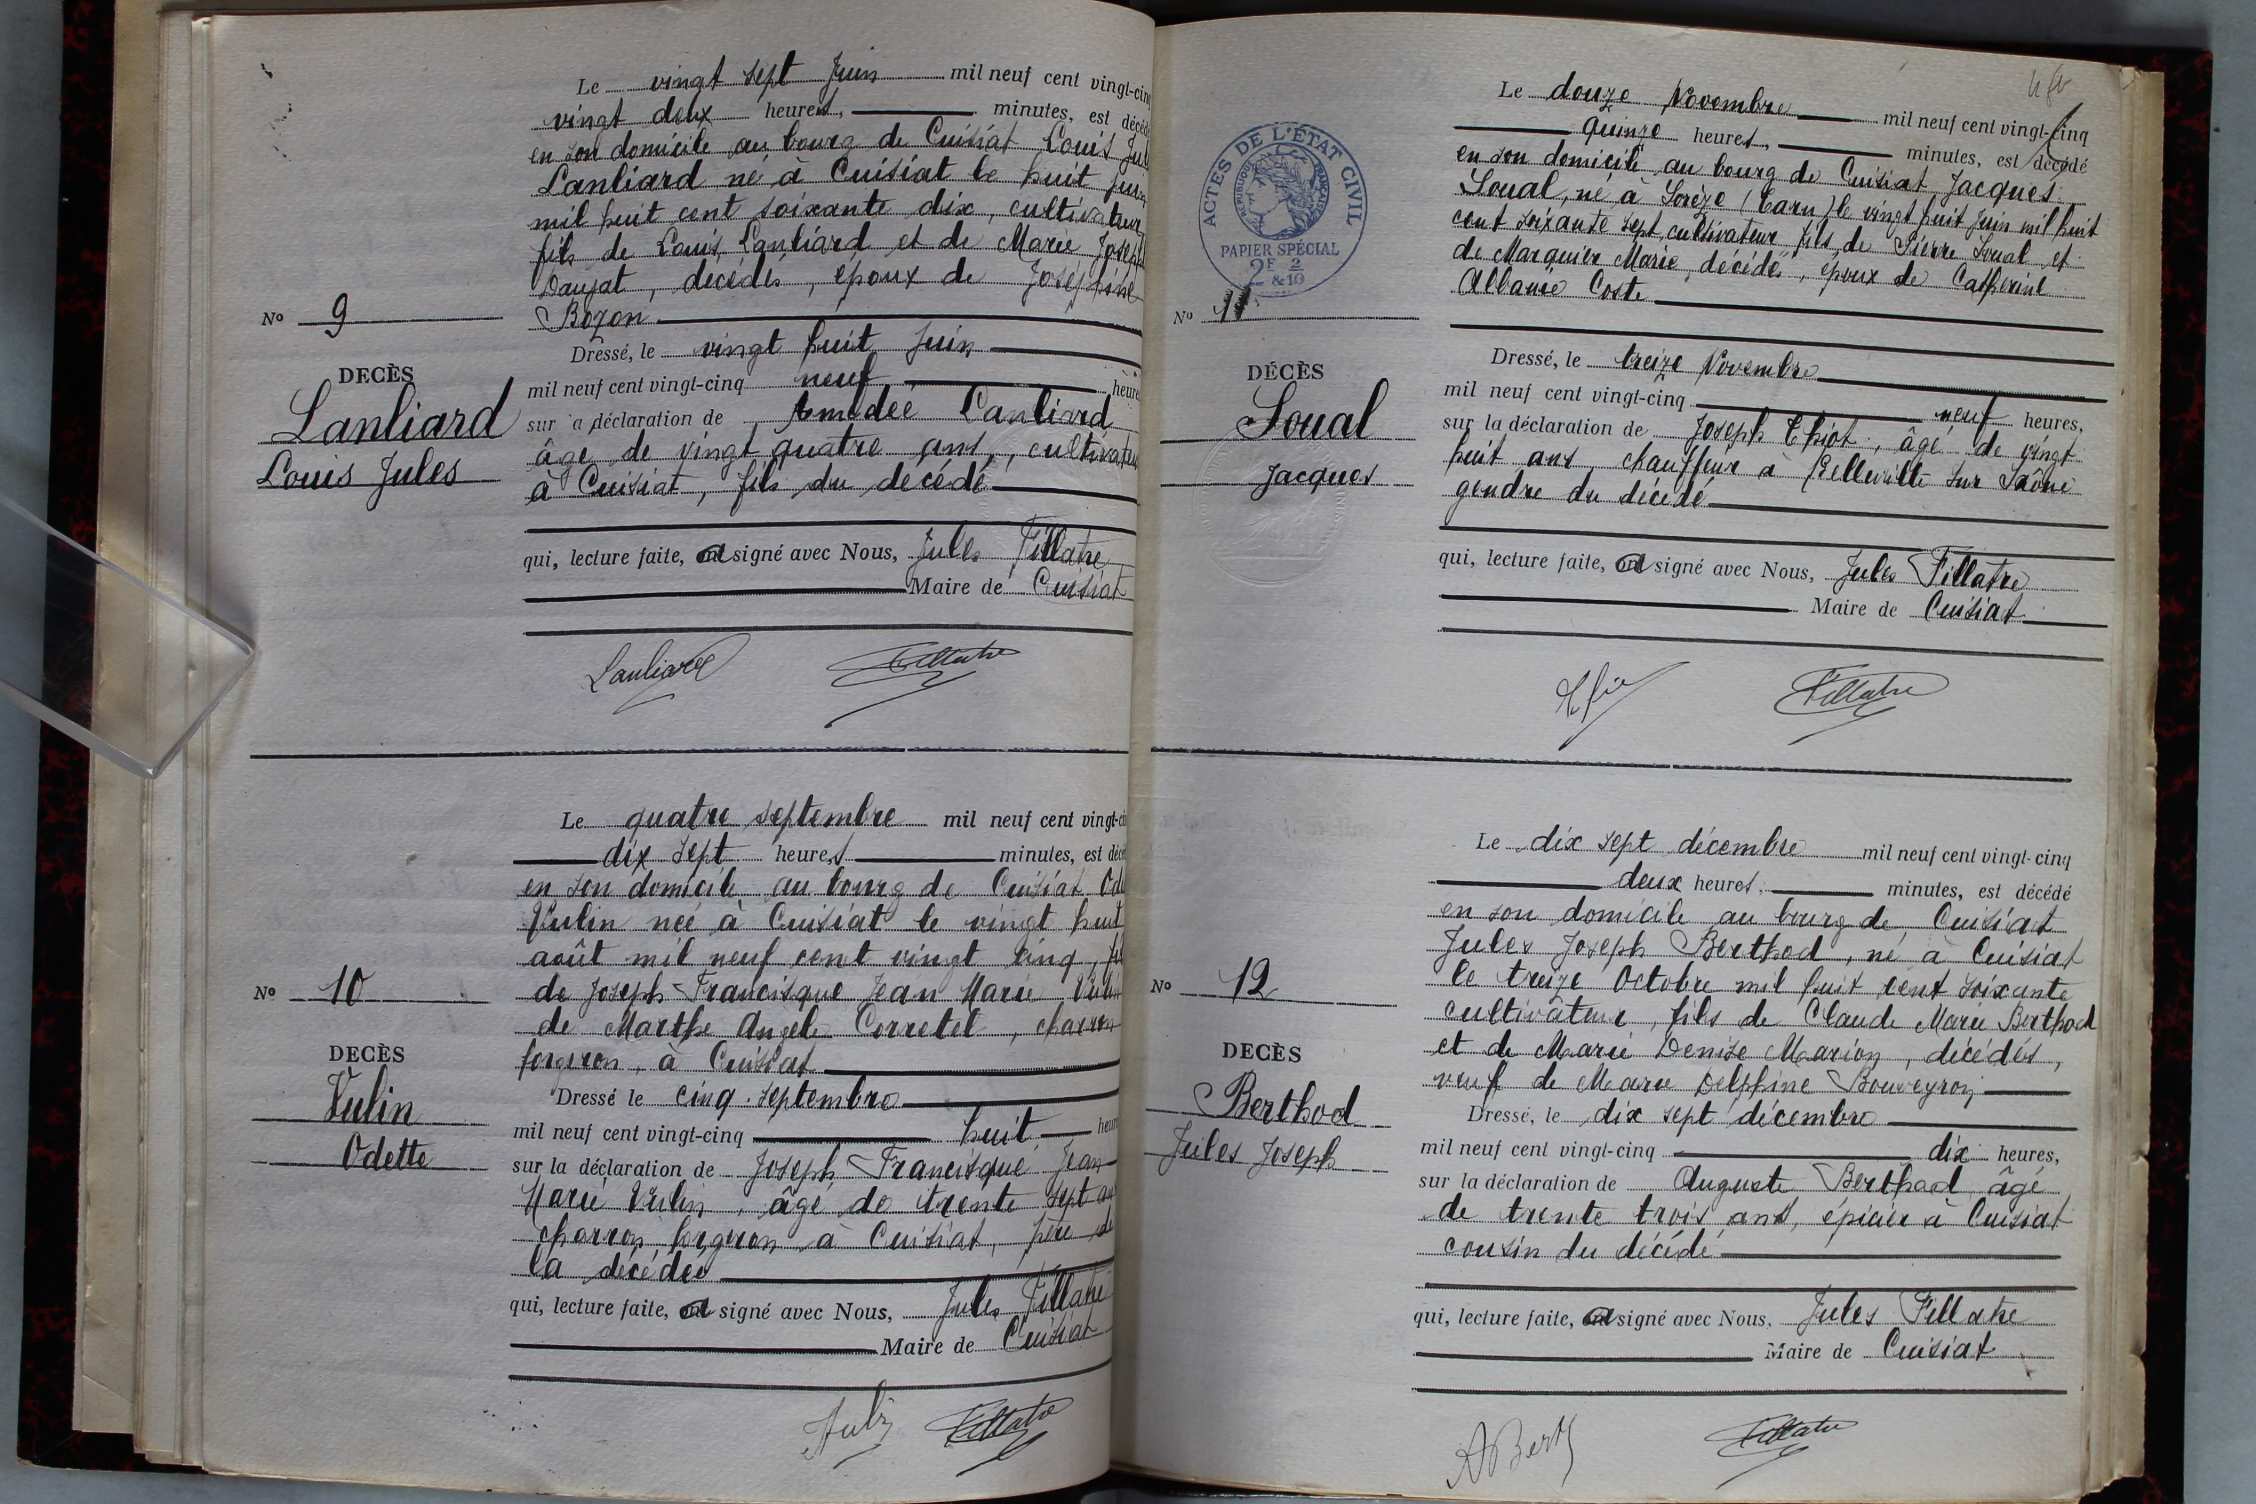 Le vingt sept Juin mil neuf cent vingt-cinq
vingt deux heures, minutes, est décédé
en son domicile au bourg de Cuisiat Louis Jul
Lanliard né à Cuisiat le huit juin
mil huit cent soixante dix, cultivateur,
fils de Louis Lanliard et de Marie Joseph
Daujat, décédés, époux de Joséphine
Bozon
No 9
Dressé, le vingt huit Juin
DECÈS
mil neuf cent vingt-cinq neuf heures
Lanliard
sur la déclaration de Amédée Lanliard
âgé de vingt quatre ans, cultivateu
Louis Jules
à Cuisiat, fils du décédé
qui, lecture faite, a signé avec Nous, Jules Fillatre
Maire de Cuisiat
Lanliard Fillatre
Le quatre septembre mil neuf cent vingt-ci
dix sept heures minutes, est décé
en son domicile au bourg de Cuisiat Ode
Vulin née à Cuisiat le vingt huit
août mil neuf cent vingt cinq, fil
de Joseph Francisque Jean Marie Vulin
No 10
de Marthe Angele Corretel, charron
forgeron, à Cuisiat
DECÈS
Dressé le cinq septembre
Vulin
mil neuf cent vingt-cinq huit heure
Odette
sur la déclaration de Joseph Francisque Jean
Marie Vulin, âgé de trente sept an
charron forgeron à Cuisiat, père de
la décédée
qui, lecture faite, a signé avec Nous, Jules Fillatre
Maire de Cuisiat
Vulin Fillatre
Le douze Novembre mil neuf cent vingt-cinq
quinze heures, minutes, est décédé
en son domicile au bourg de Cuisiat Jacques
Soual, né à Sorèze (Tarn) le vingt huit Juin mil huit
cent soixante sept, cultivateur fils de Pierre Soual et
de Marquier Marie, décédés, époux de Catherine
Albanie Coste
ACTES DE L'ÉTAT CIVIL
RÉPUBLIQUE FRANÇAISE
PAPIER SPÉCIAL
2F 2
&10
No 11
Dressé, le treize Novembre
DÉCÈS
mil neuf cent vingt-cinq neuf heures,
Soual
sur la déclaration de Joseph Thiot, âgé de vingt
huit ans, chauffeur à Belleville sur Saône
Jacques
gendre du décédé
qui, lecture faite, a signé avec Nous, Jules Fillatre
Maire de Cuisiat
Fillatre
Le dix sept décembre mil neuf cent vingt-cinq
deux heures, minutes, est décédé
en son domicile au bourg de Cuisiat
Jules Joseph Berthod, né à Cuisiat
le treize Octobre mil huit cent soixante
No 12
cultivateur, fils de Claude Marie Berthod
et de Marie Denise Marion, décédés,
DECÈS
veuf de Marie Delphine Bouveyron
Berthod
Dressé, le dix sept décembre
Jules Joseph
mil neuf cent vingt-cinq dix heures,
sur la déclaration de Auguste Berthod, âgé
de trente trois ans, épicier à Cuisiat
cousin du décédé
qui, lecture faite, a signé avec Nous, Jules Fillatre
Maire de Cuisiat
A Bert Fillatre